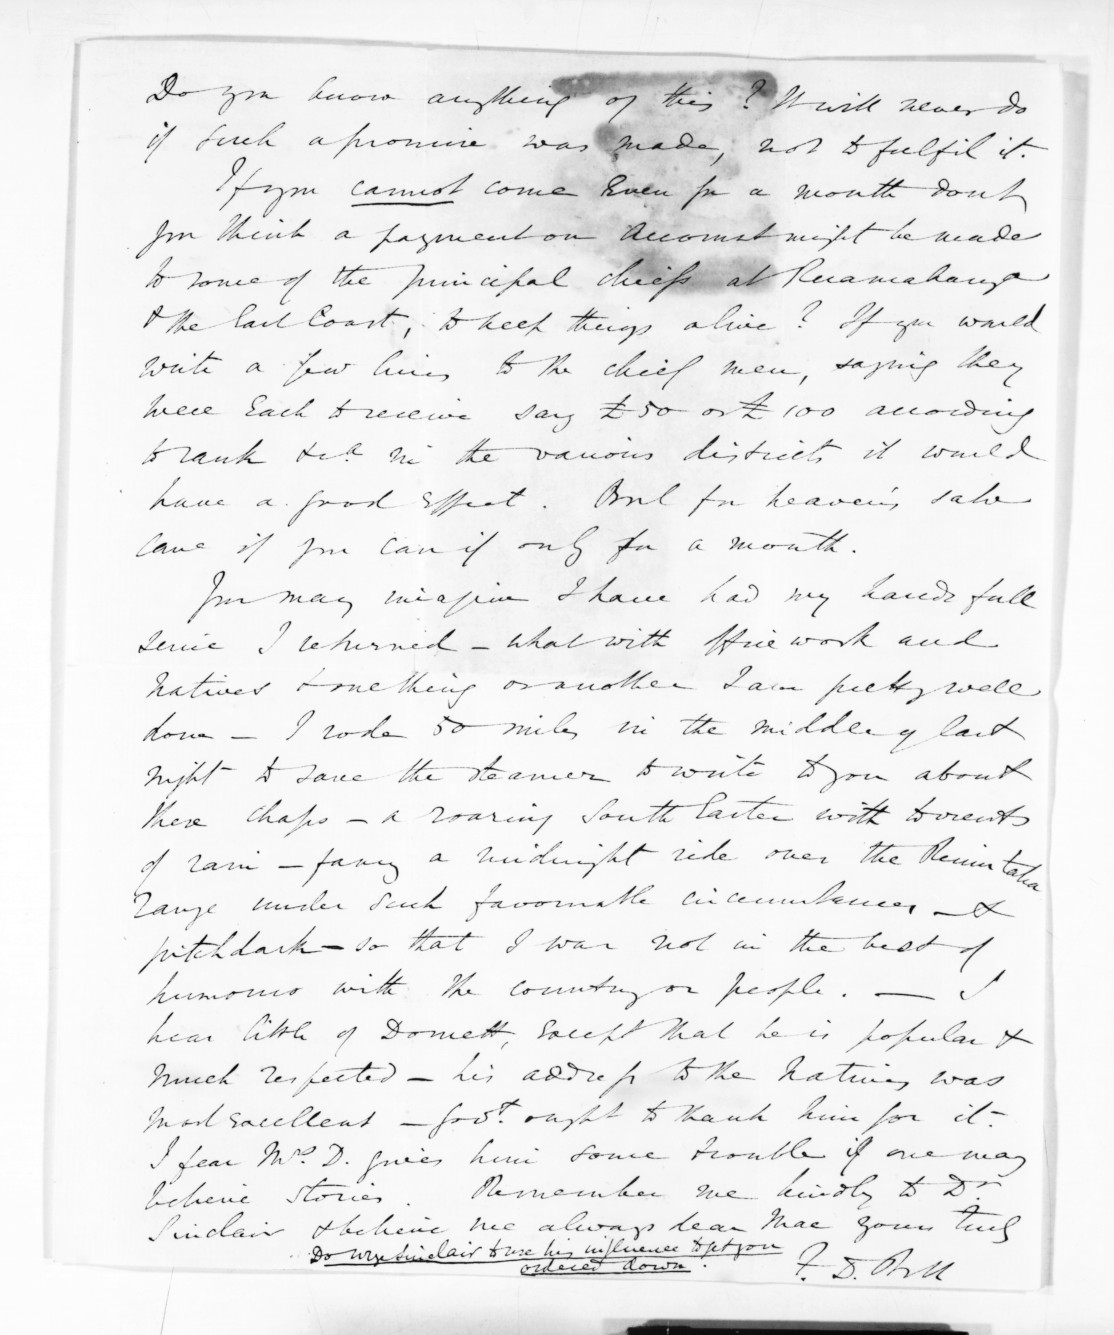 Do you know anything of this? It will never do
if such a promise was made, not to fulfil it.
If you cannot come even for a month dont
you think a payment on account might be made
to some of the principal chiefs at Ruamahanga
& the East Coast, to keep things alive? If you would
write a few lines to the chief men, saying they
were each to receive say £50 or £100 according
to rank &ca in the various districts it would
have a good effect. But for heaven's sake
come if you can if only for a month.
You may imagine I have had my hands full
since I returned – what with office work and
natives & something or another I am pretty well
done – I rode 50 miles in the middle of last
night to save the steamer to write to you about
these chaps – a roaring South Easter with torrents
of rain – fancy a midnight ride over the Remutaka
range under such favourable circumstances – &
pitchdark – so that I was not in the best of
humours with the country or people. — I
hear little of Domett, except that he is popular &
much respected – his address to the Natives was
most excellent – Govt. ought to thank him for it.
I fear Mrs. D. gives him some trouble if one may
believe stories. Remember me kindly to Dr.
Sinclair & believe me always dear Mac yours truly
F. D. Bell
Do urge Sinclair to use his influence to get you
ordered down.